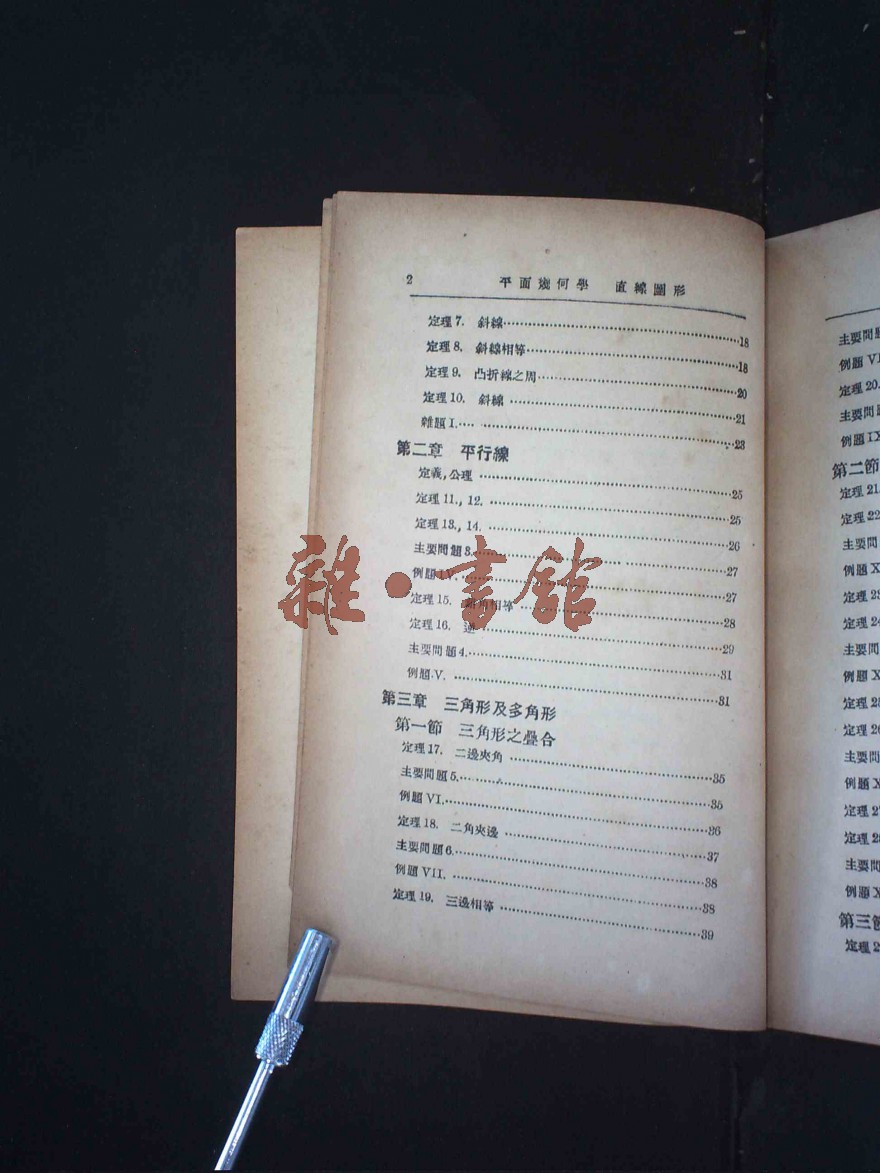 2 平面幾何學 直線圖形
定理7. 斜線……18
定理8. 斜線相等……18
定理9. 凸折線之周……20
定理10. 斜線……21
雜題I.……23
第二章 平行線
定義,公理……25
定理11., 12.……25
定理13., 14.……26
主要問題3.……27
例題IV.……27
定理15. 錯角相等……28
定理16. 逆……29
主要問題4.……31
例題V.……31
第三章 三角形及多角形
第一節 三角形之疊合
定理17. 二邊夾角……35
主要問題5.……35
例題VI.……36
定理18. 二角夾邊……37
主要問題6.……38
例題VII.……38
定理19. 三邊相等……39
雜·書館
主要問題
例題VI
定理20.
主要問題
例題IX
第二節
定理21.
定理22
主要問
例題X
定理23
定理24
主要問
例題X
定理25
定理26
主要問
例題X
定理27
定理28
主要問
例題X
第三節
定理2